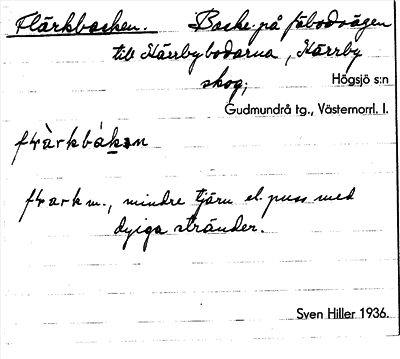 Flärkbacken. Backe på fäbodvägen
till Härrbybodarna, Härrby
skog,
Högsjö s:n
Gudmundrå tg., Västernorrl. l.
flark m., mindre tjärn el. puss med
dyiga stränder.
Sven Hiller 1936.